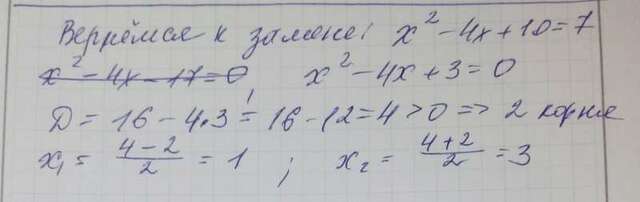 Вернёмся к замене: x² - 4x + 10 = 7
x² - 4x - 17 = 0 x² - 4x + 3 = 0
D = 16 - 4·3 = 16 - 12 = 4 > 0 => 2 корня
x₁ = (4-2)/2 = 1 ; x₂ = (4+2)/2 = 3